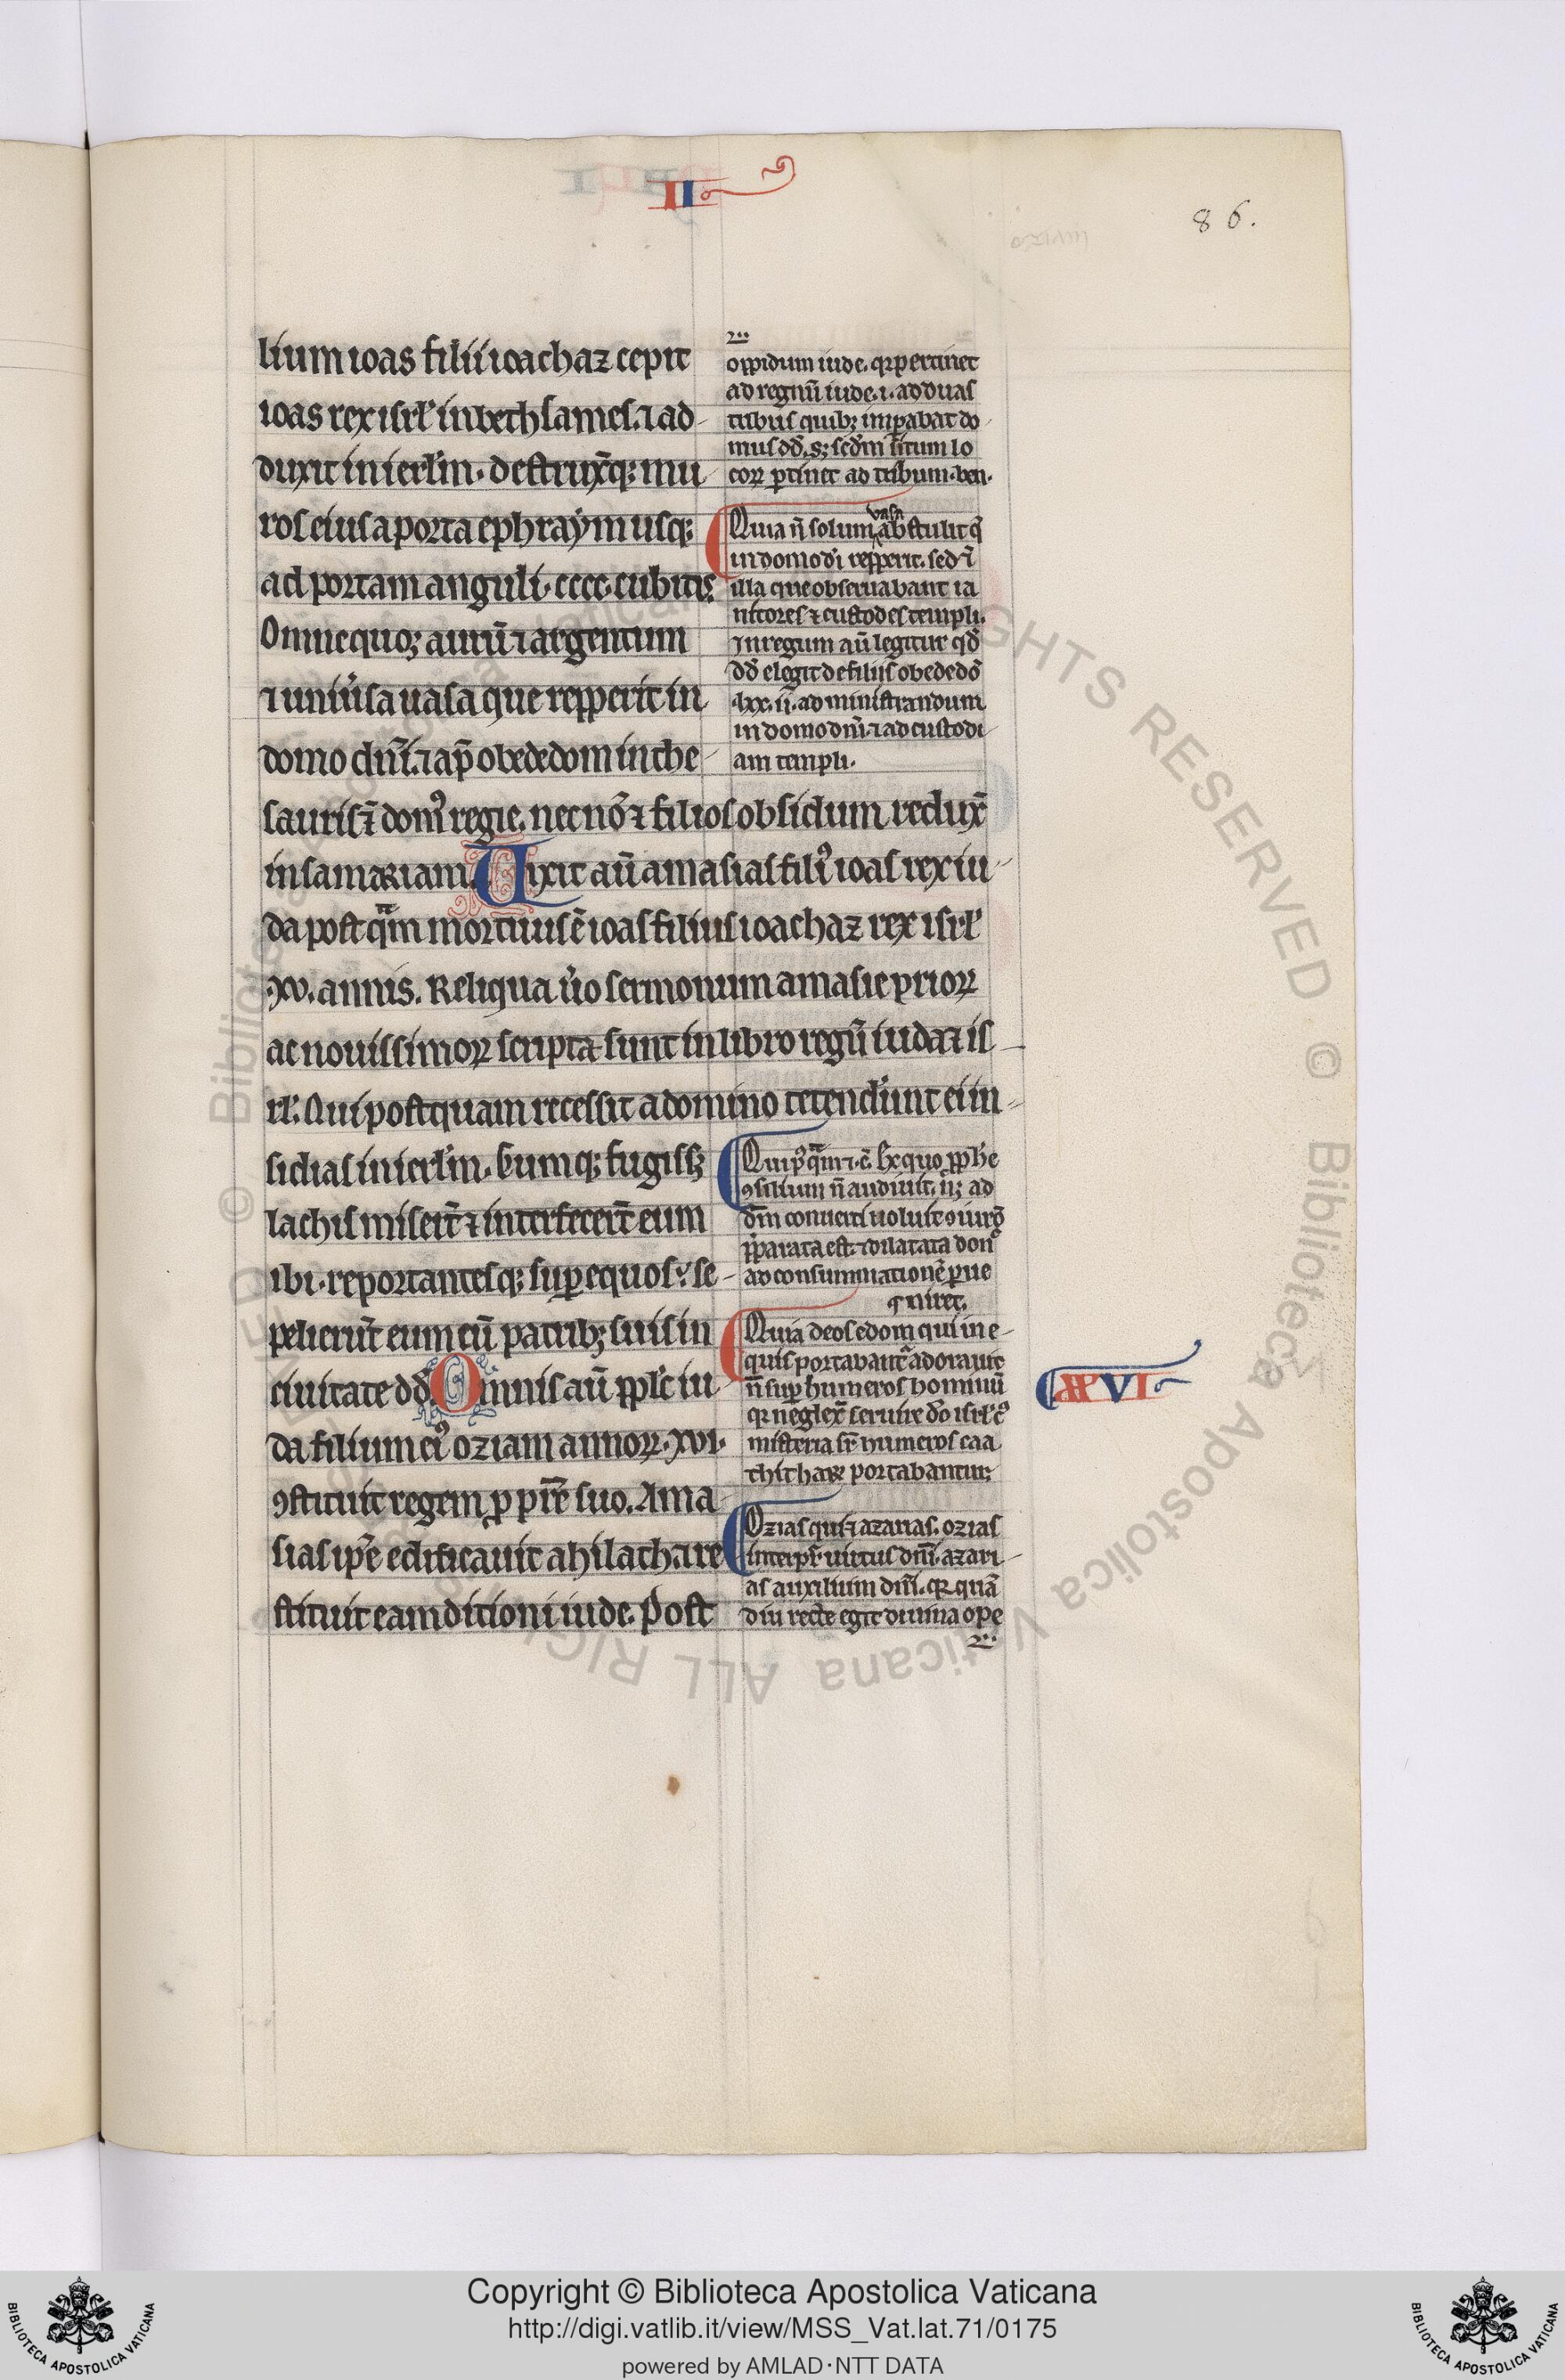 II
86.
lium ioas filii ioachaz cepit
ioas rex isrl' in beth sames. ⁊ ad
duxit in ierl'm. destruxitq; mu
ros eius a porta ephraym usq;
ad portam anguli. cccc. cubitis.
Omne quoq; aurū ⁊ argentum
⁊ uniu'sa uasa que repperit in
domo dn̄i. ⁊ ap̄ obededom in the
sauris ⁊̄ domꝰ regie. nec nō ⁊ filios obsidum redux̄
in samariam. Uixit aū amasias filiꝰ ioas rex iu
da postq̄m mortuus ē ioas filius ioachaz rex isrl'
xv. annis. Reliqua u'o sermonum amasie prioꝝ
ac nouissimoꝝ scripta sunt in libro regū iuda ⁊ is
rl'. Qui postquam recessit a domino tetend'unt ei in
sidias in ierl'm. Cumq; fugiss;
lachis miser̄t ⁊ interfecer̄t eum
ibi. reportantesq; sup equos: se
pelierūt eum cū patrib; suis in
ciuitate dd̄. Omnis aū ppl'c iu
da filium eiꝰ oziam annoꝝ. xvi.
ꝯstituit regem p pr̄e suo. Ama
sias ip̄e edificauit ahilath. ⁊ re
stituit eam ditioni iude. Post
oppidum iude. qꝛ pertinet
ad regnū iude. i. ad duas
tribus quib; impabat do
mus dd̄. s; scdm situm lo
coꝝ ptinet ad tribum. ben.
Quia ñ solum uasa abstulit q̄
in domo di repperit. sed ⁊̄
illa que obseruabant ia
nitores ⁊ custodes templi.
In regum aū legitur qd̄
dd̄ elegit de filiis obededō
lxx. ii. ad ministrandum
in domo dn̄i. ⁊ ad custodi
am templi.
Quip̄ꝰq̄m ⁊. c̄. hec quo pphe
ꝯsilium ñ audiuit. ñ; ad
dm̄ conuerti uoluit
pparata est. ⁊ dilatata don
ad consummationē pue
niret.
Quia deos edom qui in e
quis portabant᷑ adorauit
ñ sup humeros hominū
qꝛ neglex̄ seruire dō isrl' cꝰ
misteria sr̄ humeros caa
thitaꝝ portabantur.
XXVI
Ozias qui ⁊ azarias. ozias
interpr̄. uirtus dn̄i. azari
as auxilium dn̄i. qꝛ quā
diu recte egit diuina ope
Copyright © Biblioteca Apostolica Vaticana
http://digi.vatlib.it/view/MSS_Vat.lat.71/0175
powered by AMLAD·NTT DATA
BIBLIOTECA APOSTOLICA VATICANA
BIBLIOTECA APOSTOLICA VATICANA